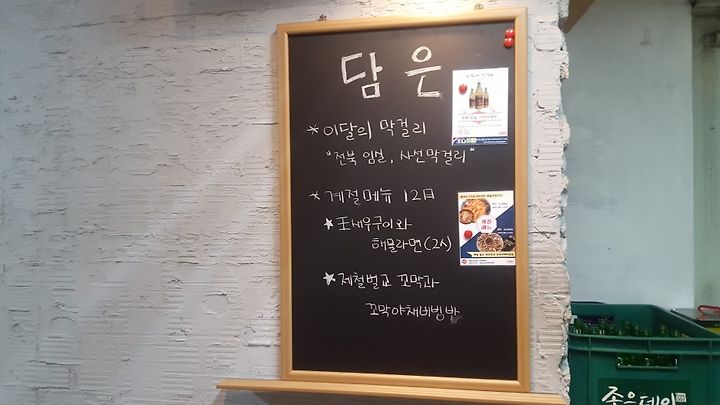 담은
* 이달의 막걸리
"전북 임실, 사선막걸리"
* 계절메뉴 12月
★ 王새우구이와
해물라면(2人)
★ 제철벌교 꼬막과
꼬막야채비빔밥
좋은데이